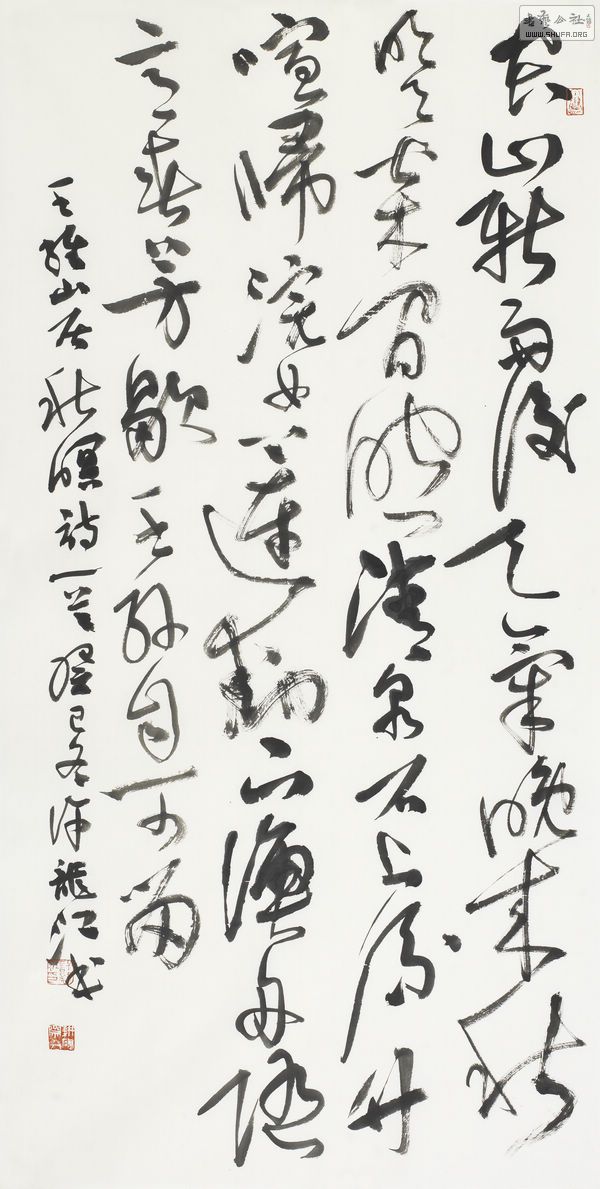 空山新雨後天氣晚來秋
明月松间照清泉石上流竹
喧歸浣女蓮動下漁舟随
意春芳歇王孫自可留
王維山居秋暝詩一首癸巳冬许龍江书
书艺公社
WWW.SHUFA.ORG